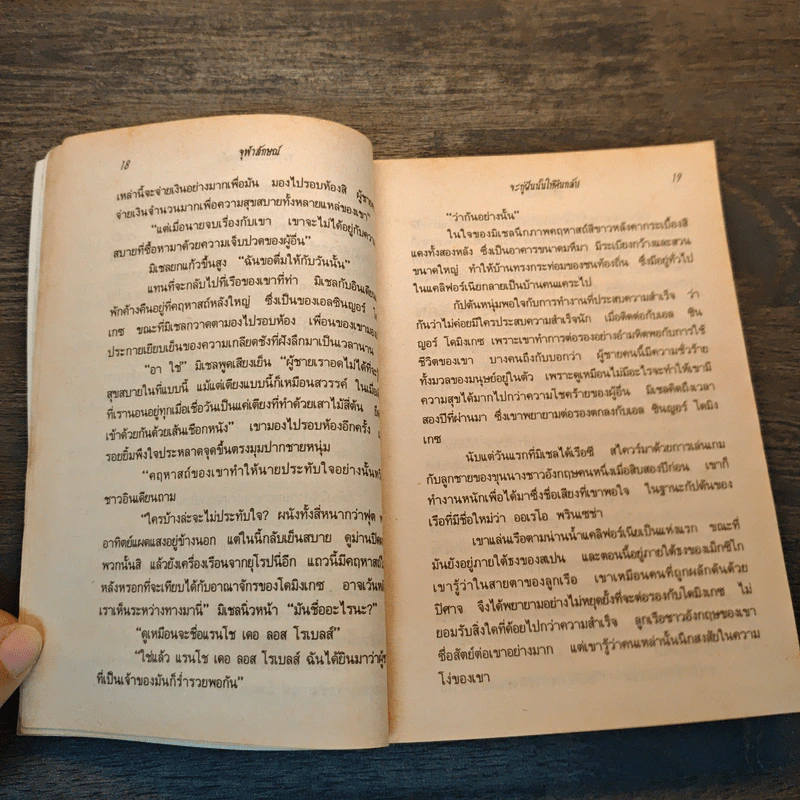 18
จุฬาลักษณ์
เหล่านี้จะจ่ายเงินอย่างมากเพื่อมัน มองไปรอบห้องสิ
จ่ายเงินจำนวนมากเพื่อความสุขสบายทั้งหลายแหล่ของเขา”
“แต่เมื่อนายจบเรื่องกับเขา เขาจะไม่ได้อยู่กับ
สบายที่ซื้อหามาด้วยความเจ็บปวดของผู้อื่น”
มิเชลยกแก้วขึ้นสูง “ฉันขอดื่มให้กับวันนั้น”
แทนที่จะกลับไปที่เรือของเขาที่ท่า มิเชลกับ
พักค้างคืนอยู่ที่คฤหาสถ์หลังใหญ่ ซึ่งเป็นของเอลซินญอร์
เกซ ขณะที่มิเชลกวาดตามองไปรอบห้อง เพื่อนของเขา
ประกายเยียบเย็นของความเกลียดชังที่ฝังลึกมาเป็นเวลานาน
“อา ใช่” มิเชลพูดเสียงเย็น “ผู้ชายเราอดไม่ได้ที่จะ
สุขสบายในที่แบบนี้ แม้แต่เตียงแบบนี้ก็เหมือนสวรรค์
ที่เรานอนอยู่ทุกเมื่อเชื่อวันเป็นแค่เตียงที่ทำด้วยเสาไม้สี่ต้น
เข้าด้วยกันด้วยเส้นเชือกหนัง” เขามองไปรอบห้องอีกครั้ง
รอยยิ้มพึงใจประหลาดจุดขึ้นตรงมุมปากชายหนุ่ม
“คฤหาสถ์ของเขาทำให้นายประทับใจอย่างนั้น
ชาวอินเดียนถาม
“ใครบ้างล่ะจะไม่ประทับใจ? ผนังทั้งสี่หนากว่าฟุต
อาทิตย์แผดแสงอยู่ข้างนอก แต่ในนี้กลับเย็นสบาย
พวกนั้นสิ แล้วยังเครื่องเรือนจากยุโรปนี่อีก แถวนี้มี
หลังหรอกที่จะเทียบได้กับอาณาจักรของโดมิงเกซ
เราเห็นระหว่างทางมานี่” มิเชลนิ่วหน้า “มันชื่ออะไรนะ?”
“ดูเหมือนจะชื่อแรนโช เดอ ลอส โรเบลส์”
“ใช่แล้ว แรนโช เดอ ลอส โรเบลส์ ฉันได้ยินมาว่า
ที่เป็นเจ้าของมันก็ร่ำรวยพอกัน”
จะกู่ฝันนั้นให้คืนกลับ
19
“ว่ากันอย่างนั้น”
ในใจของมิเชลนึกภาพคฤหาสถ์สีขาวหลังคากระเบื้องสี
แดงทั้งสองหลัง ซึ่งเป็นอาคารขนาดมหึมา มีระเบียงกว้างและสวน
ขนาดใหญ่ ทำให้บ้านทรงกระท่อมของชนท้องถิ่น ซึ่งมีอยู่ทั่วไป
ในแคลิฟอร์เนียกลายเป็นบ้านคนแคระไป
กัปตันหนุ่มพอใจกับการทำงานที่ประสบความสำเร็จ ว่า
กันว่าไม่ค่อยมีใครประสบความสำเร็จนัก เมื่อติดต่อกับเอล ซิน
ญอร์ โดมิงเกซ เพราะเขาทำการต่อรองอย่างอำมหิตพอกับการใช้
ชีวิตของเขา บางคนถึงกับบอกว่า ผู้ชายคนนี้มีความชั่วร้าย
ทั้งมวลของมนุษย์อยู่ในตัว เพราะดูเหมือนไม่มีอะไรจะทำให้เขามี
ความสุขได้มากไปกว่าความโชคร้ายของผู้อื่น มิเชลคิดถึงเวลา
สองปีที่ผ่านมา ซึ่งเขาพยายามต่อรองตกลงกับเอล ซินญอร์ โดมิง
เกซ
นับแต่วันแรกที่มิเชลได้เรือซี สไควร์มาด้วยการเล่นเกม
กับลูกชายของขุนนางชาวอังกฤษคนหนึ่งเมื่อสิบสองปีก่อน เขาก็
ทำงานหนักเพื่อได้มาซึ่งชื่อเสียงที่เขาพอใจ ในฐานะกัปตันของ
เรือที่มีชื่อใหม่ว่า ออเรโอ พรินเซซ่า
เขาแล่นเรือตามน่านน้ำแคลิฟอร์เนียเป็นแห่งแรก ขณะที่
มันยังอยู่ภายใต้ธงของสเปน และตอนนี้อยู่ภายใต้ธงของเม็กซิโก
เขารู้ว่าในสายตาของลูกเรือ เขาเหมือนคนที่ถูกผลักดันด้วย
ปิศาจ จึงได้พยายามอย่างไม่หยุดยั้งที่จะต่อรองกับโดมิงเกซ ไม่
ยอมรับสิ่งใดที่ด้อยไปกว่าความสำเร็จ ลูกเรือชาวอังกฤษของเขา
ซื่อสัตย์ต่อเขาอย่างมาก แต่เขารู้ว่าคนเหล่านั้นนึกสงสัยในความ
โง่ของเขา